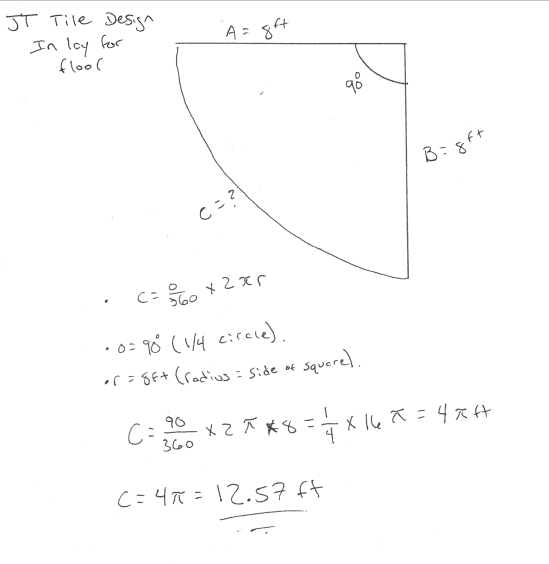 JT Tile Design
In lay for
floor
A = 8ft
90°
B = 8ft
C = ?
• C = 0/360 x 2πr
• 0 = 90° (1/4 circle).
• r = 8ft (radius = side of square).
C = 90/360 x 2π x 8 = 1/4 x 16π = 4π ft
C = 4π = 12.57 ft